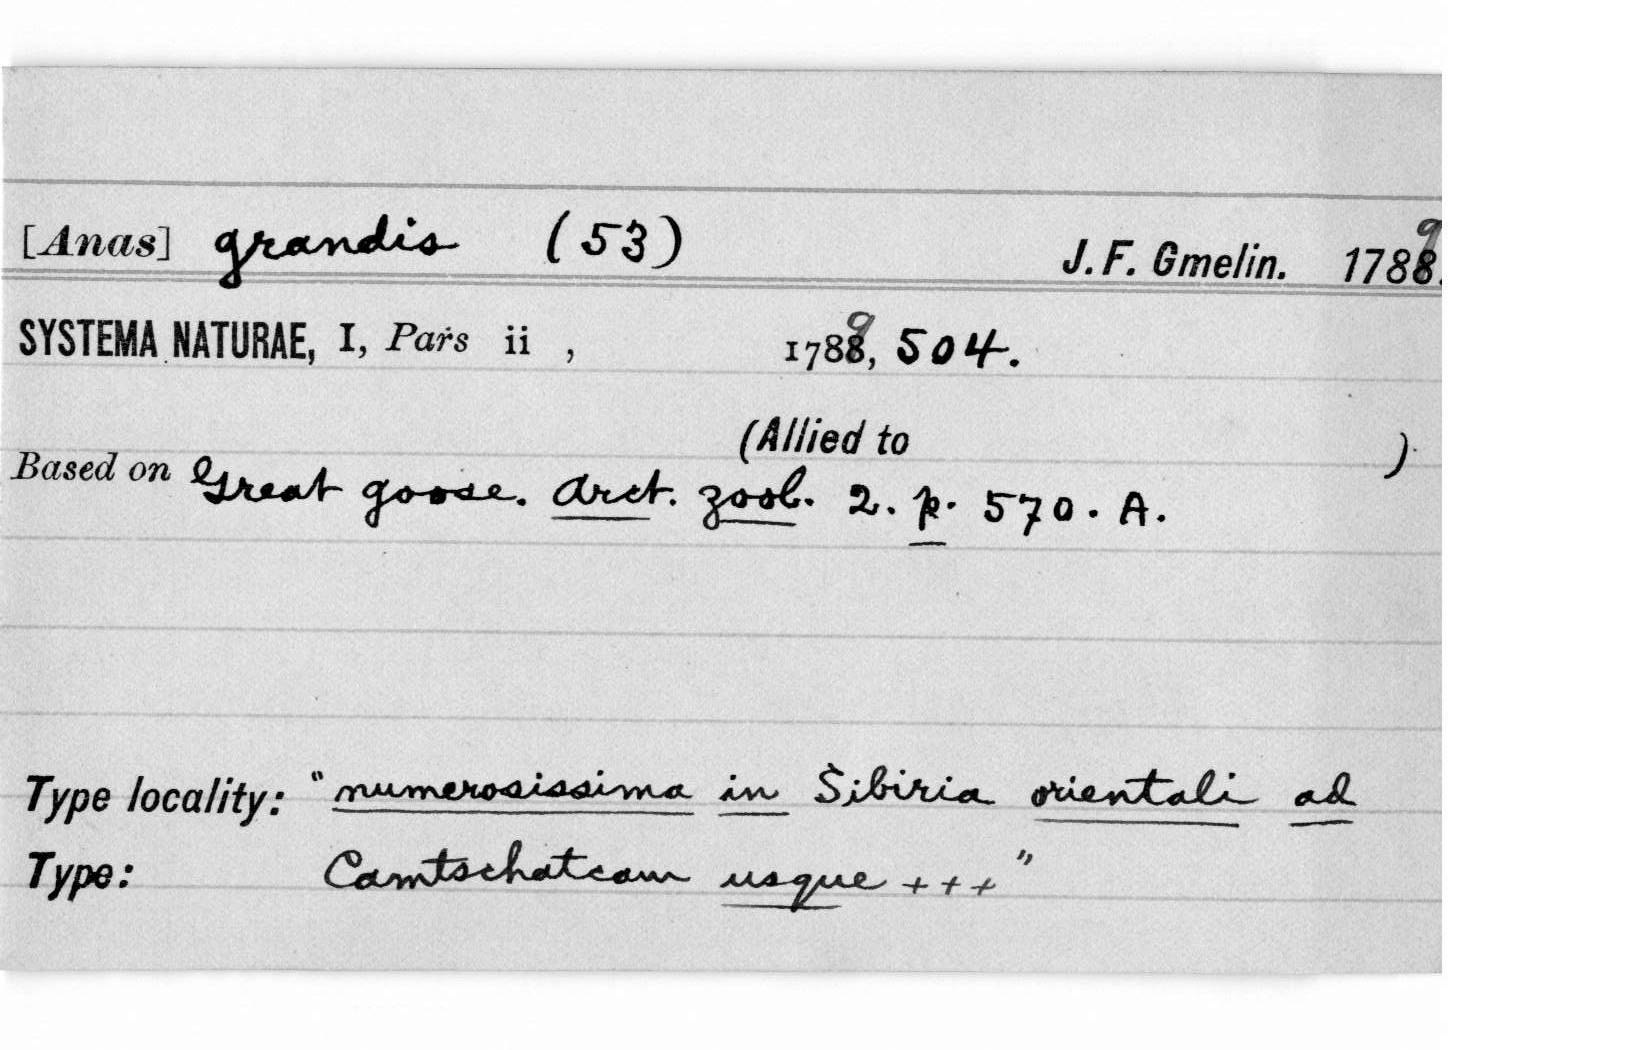 [Anas] grandis (53) J. F. Gmelin. 1789.
SYSTEMA NATURAE, I, Pars ii , 1789, 504.
(Allied to )
Based on Great goose. Arct. zool. 2. p. 570. A.
Type locality: "numerosissima in Sibiria orientali ad
Type: Camtschatcam usque +++"